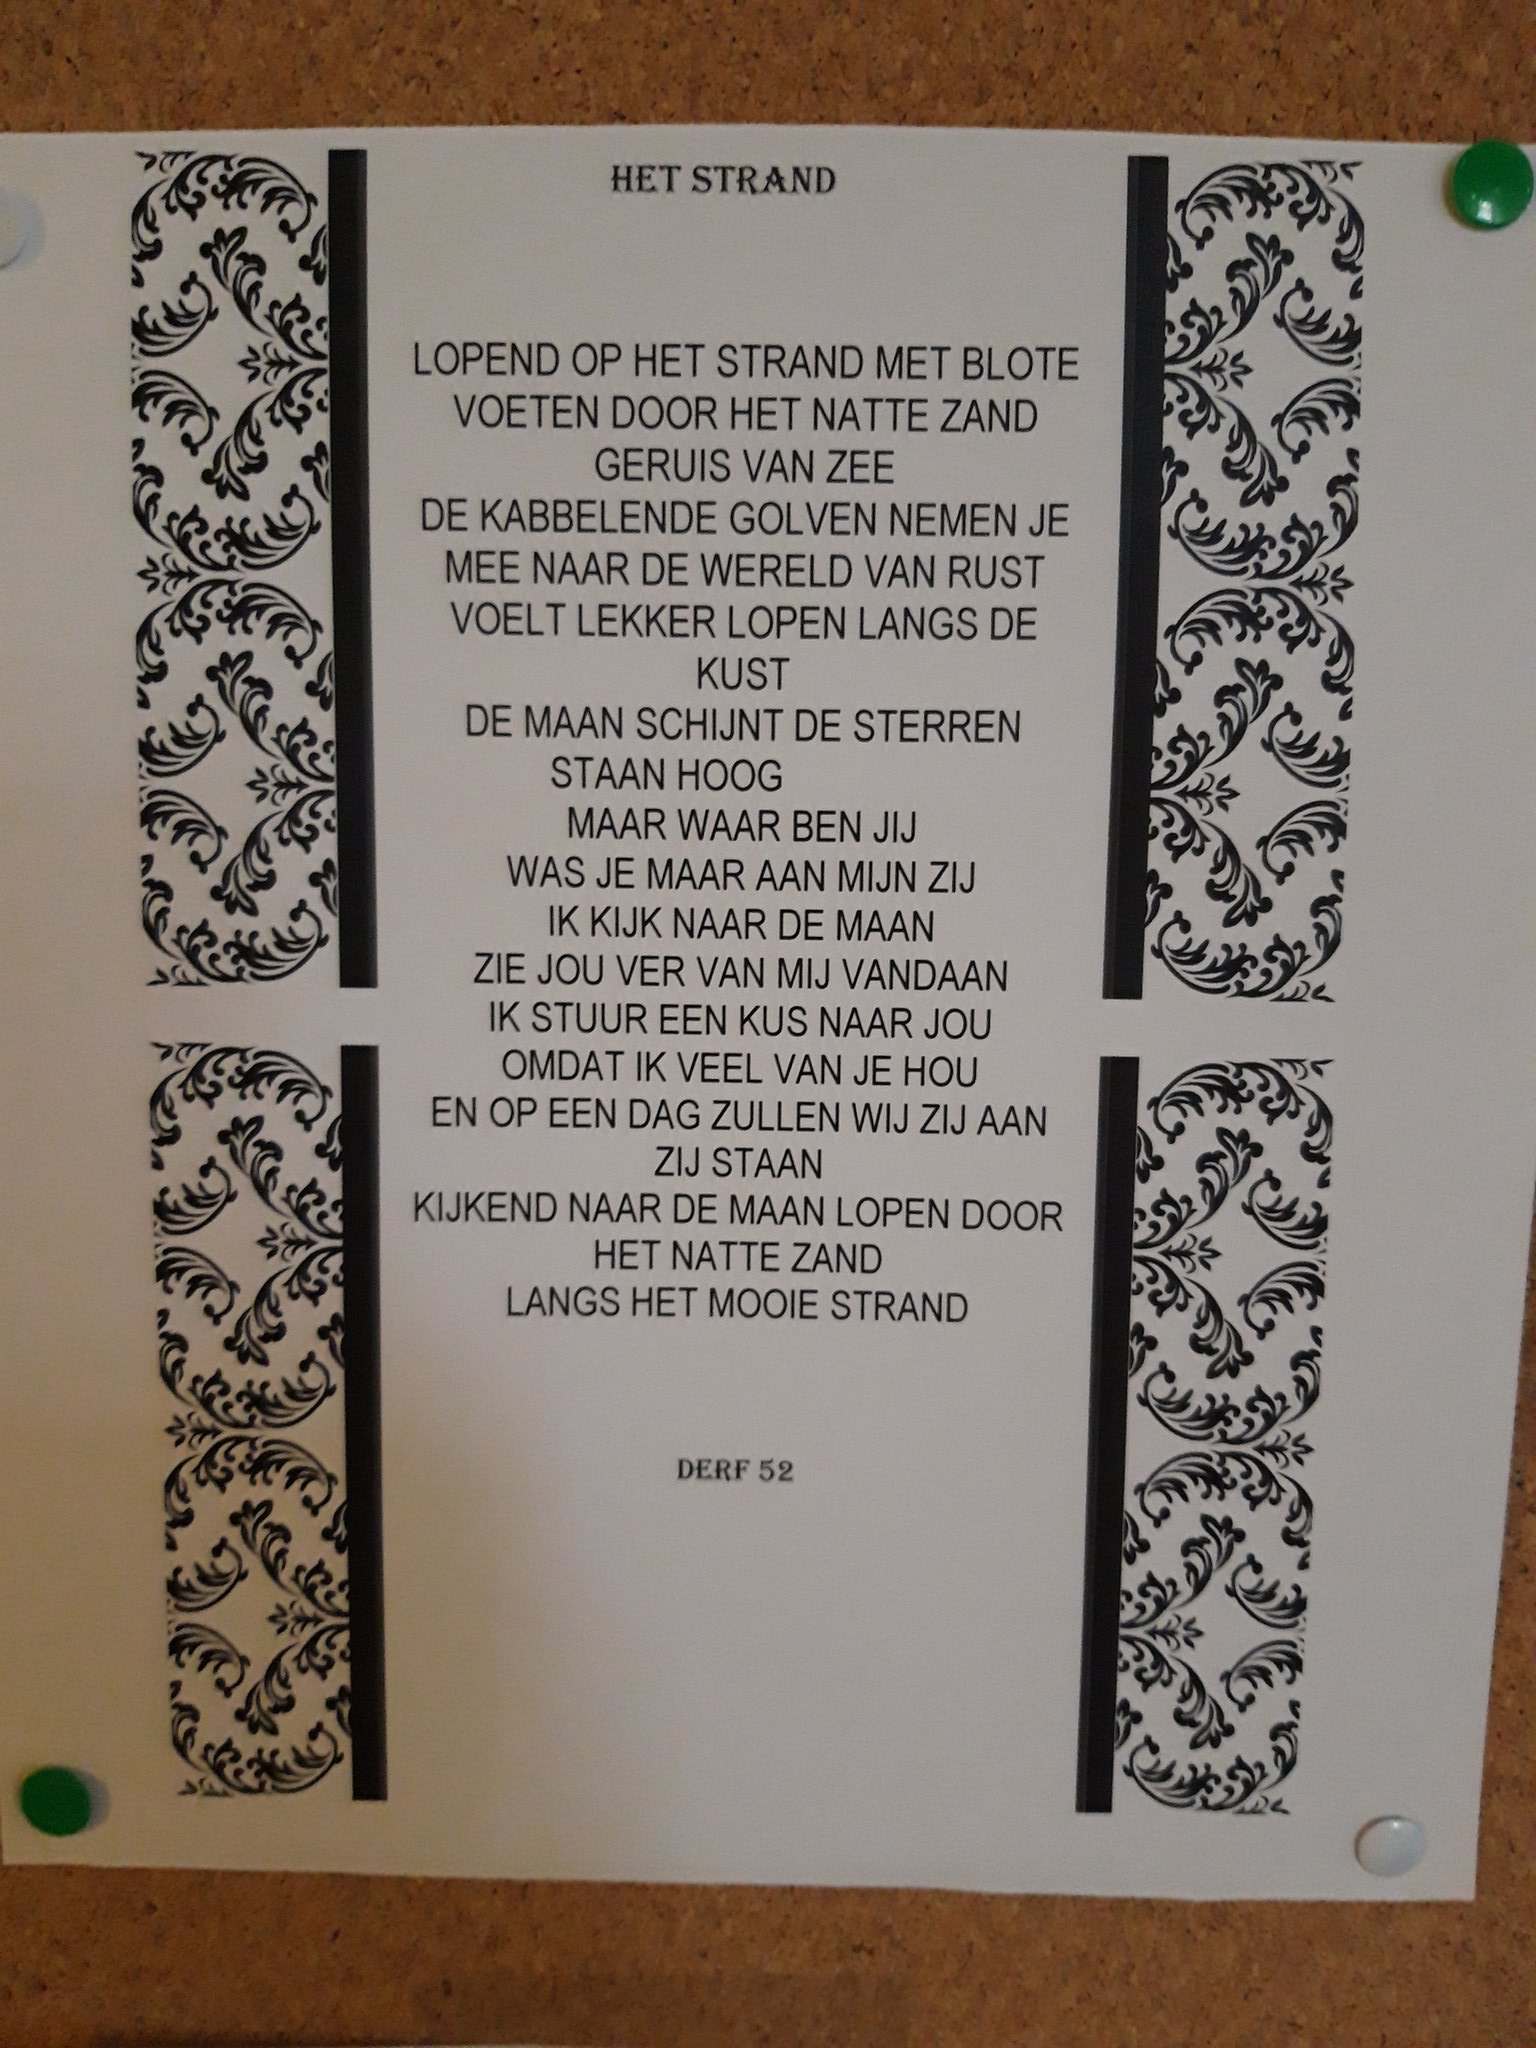 HET STRAND
LOPEND OP HET STRAND MET BLOTE
VOETEN DOOR HET NATTE ZAND
GERUIS VAN ZEE
DE KABBELENDE GOLVEN NEMEN JE
MEE NAAR DE WERELD VAN RUST
VOELT LEKKER LOPEN LANGS DE
KUST
DE MAAN SCHIJNT DE STERREN
STAAN HOOG
MAAR WAAR BEN JIJ
WAS JE MAAR AAN MIJN ZIJ
IK KIJK NAAR DE MAAN
ZIE JOU VER VAN MIJ VANDAAN
IK STUUR EEN KUS NAAR JOU
OMDAT IK VEEL VAN JE HOU
EN OP EEN DAG ZULLEN WIJ ZIJ AAN
ZIJ STAAN
KIJKEND NAAR DE MAAN LOPEN DOOR
HET NATTE ZAND
LANGS HET MOOIE STRAND
DERF 52